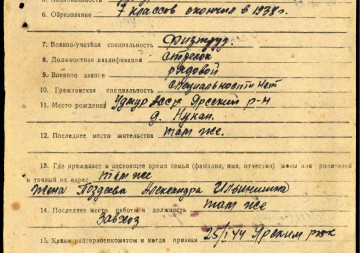 6. Образование 7 классов окончил в 1938 г.
7. Военно-учетная специальность физтруд.
8. Должностная квалификация стрелок
9. Военное звание рядовой
10. Гражданская специальность специальности нет
11. Место рождения Удмур АССР Ярский р-н
д. Нукан.
12. Последнее место жительства там же.
13. Где проживает в настоящее время семья (фамилия, имя, отчество) жены или родителей
и точный их адрес там же
жена Поздеева Александра Ильинишна
14. Последнее место работы и должность там же
завхоз
15. Каким райгорвоенкоматом и когда призван 25/I 44 Ярским рвк